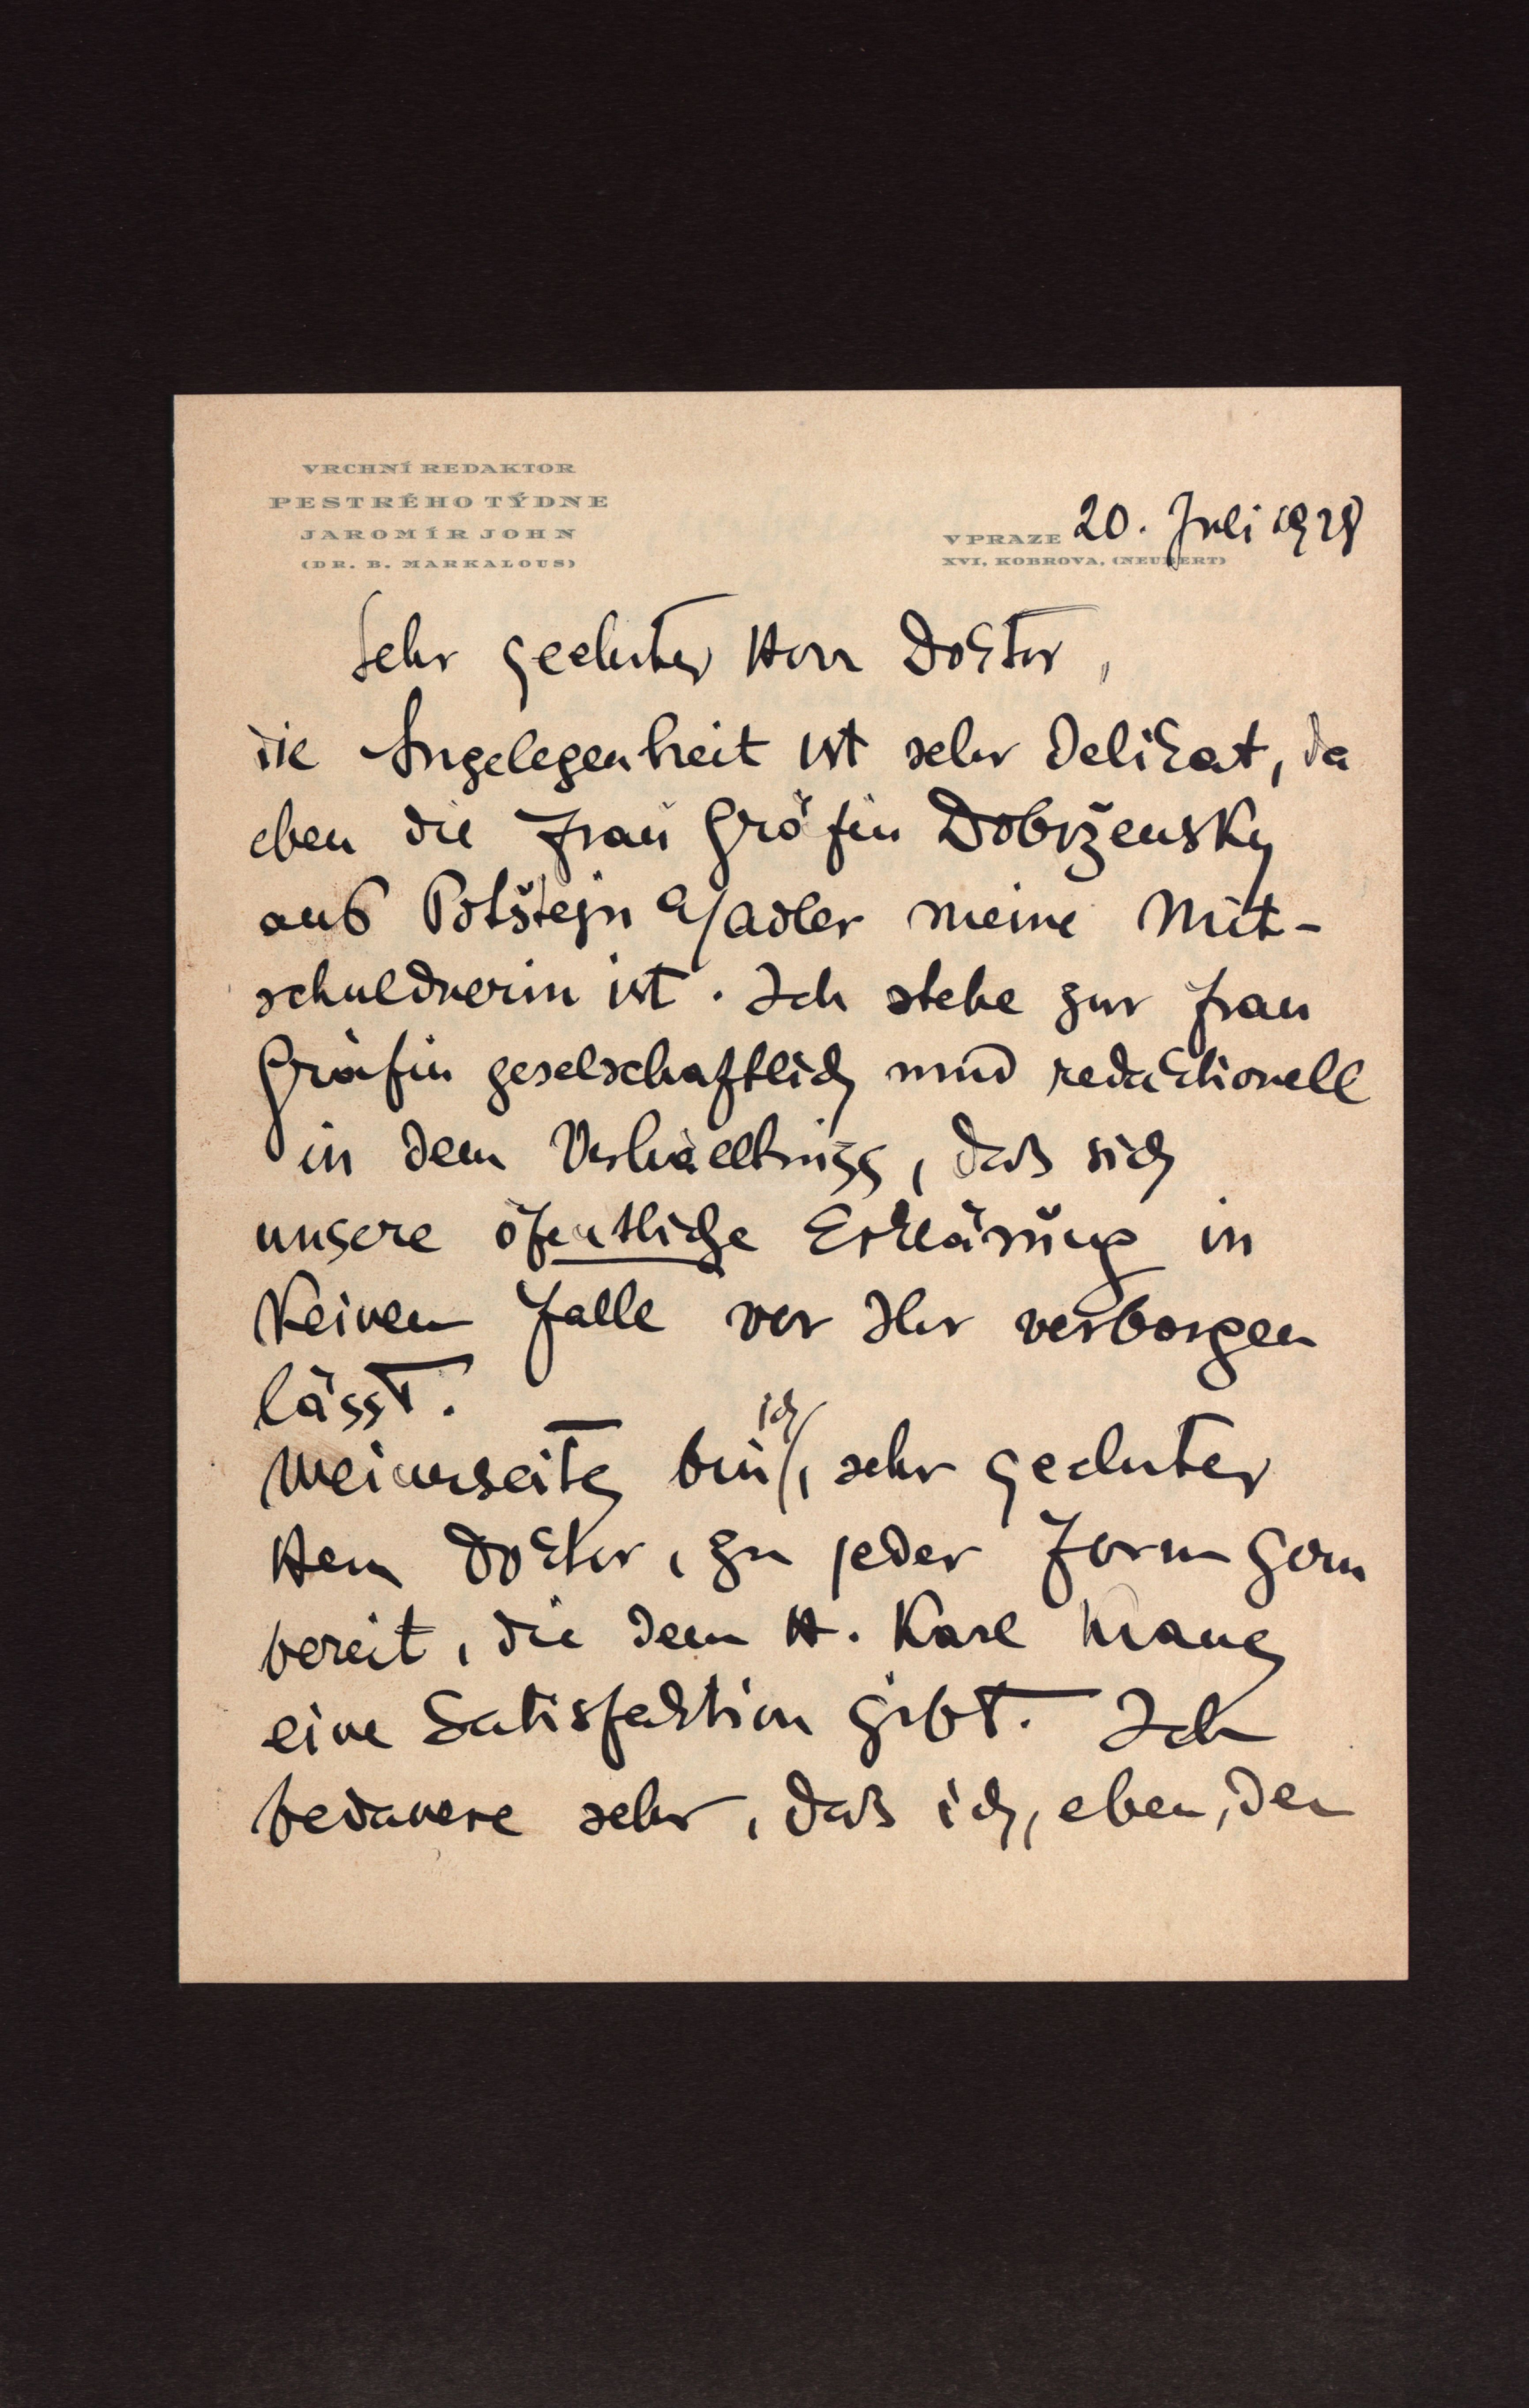 VRCHNÍ REDAKTOR
PESTRÉHO TÝDNE
JAROMÍR JOHN
(DR. B. MARKALOUS)
V PRAZE 20. Juli 1928
XVI, KOBROVA, (NEUBERT)
Sehr geehrter Herr Doktor,
die Angelegenheit ist sehr delikat, da
eben die Frau Gräfin Dobrženský
aus Potštejn a/Adler meine Mit-
schuldnerin ist. Ich stehe zur Frau
Gräfin geselschaftlich und redaktionell
in dem Verhaeltniss, daß sich
unsere öfentliche Erklärung in
keinem Falle vor Ihr verborgen
lässt.
Meinerseits bin ich, sehr geehrter
Herr Doktor, zu jeder Form gern
bereit, die dem H. Karl Kraus
eine Satisfaktion gibt. Ich
bedauere sehr, daß ich, eben, den